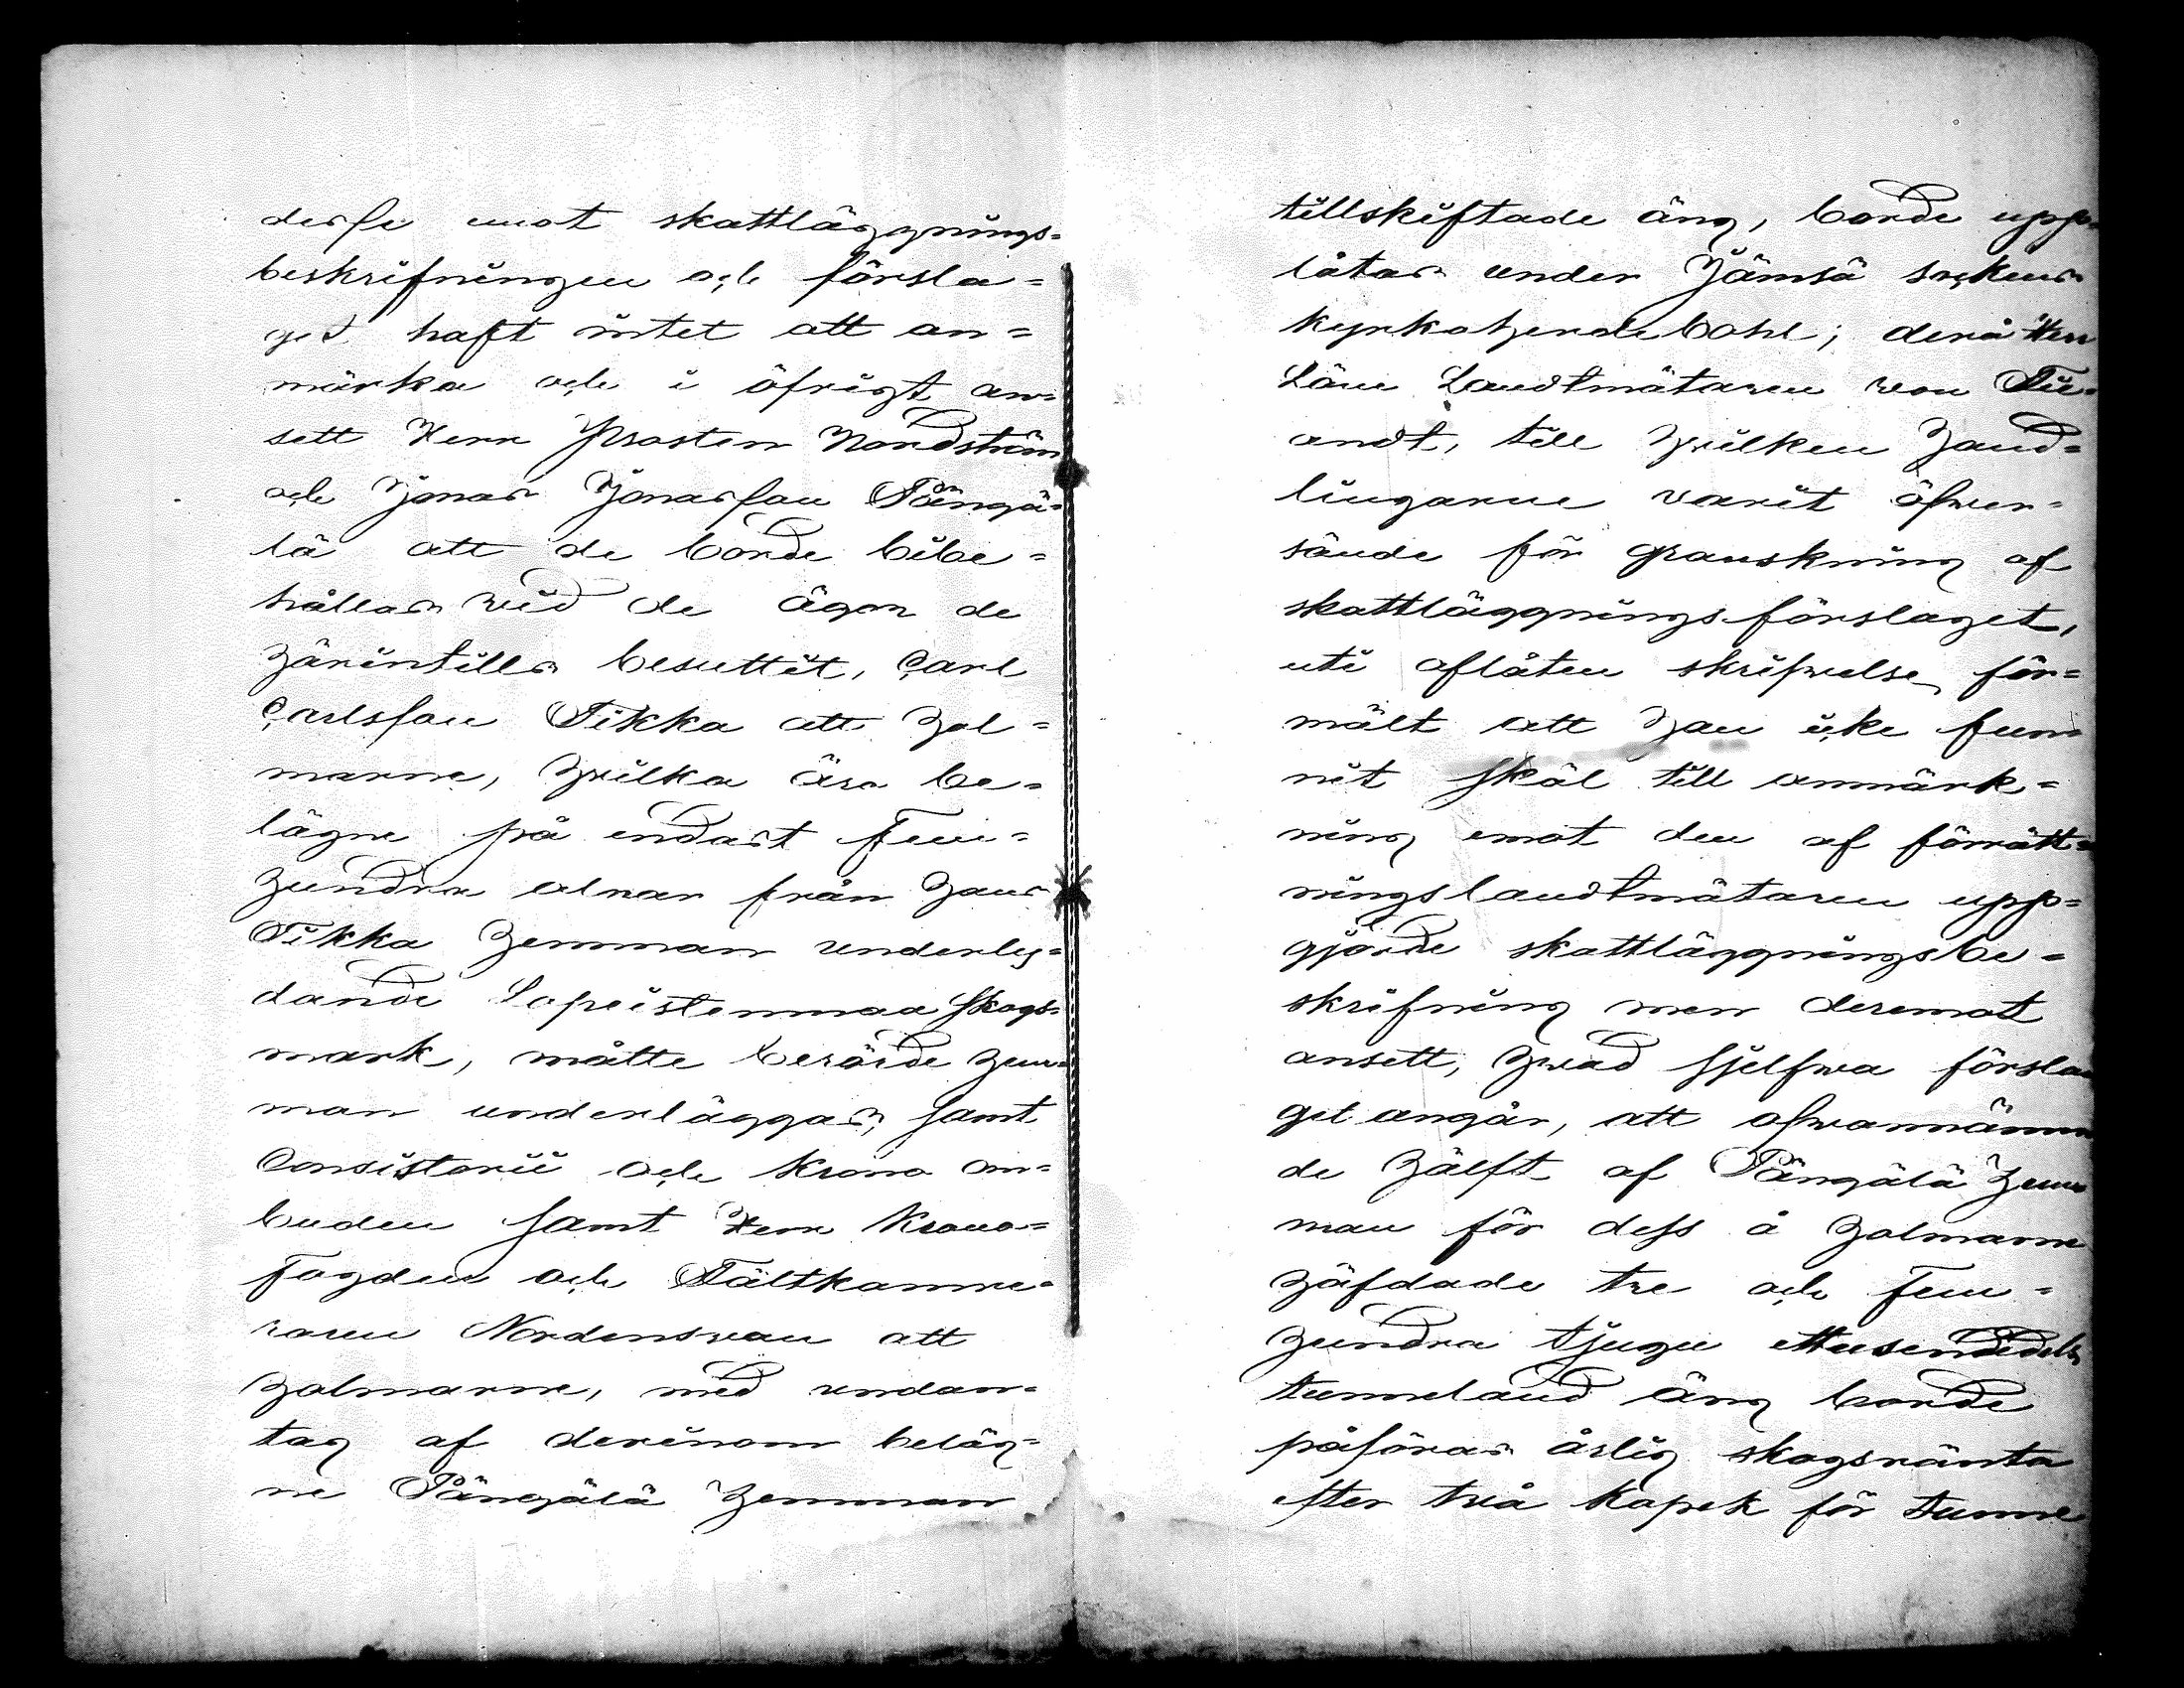 desse emot skattläggnings=
beskrifningen och försla=
get haft intet att an=
märka och i öfrigt an=
sett Herr Prosten Nordström
och Jonas Jonasson Pängä=
lä att de borde bibe=
hållas wid de ägor de
härintills besuttit, Carl
Carlsson Tikka att hol=
marne, hwilka äro be=
lägne på endast fem=
hundra alnar från hans
Tikka hemman underly=
dande Lopeistenmaa skogs=
mark, måtte berörde hem=
man underläggas, samt
Consistorii och Krono om=
buden samt Herr Krono=
Fogden och Fältkamre=
raren Nordenswan att
holmarne, med undan=
tag af derinom beläg=
ne Pängälä hemman
tillskiftade äng, borde upp=
låtas under Jämsä sockens
kyrkoherdebohl; derå Herr
Läne Landtmätaren von Fie=
andt, till hwilken hand=
lingarne varit öfwer=
sände för granskning af
skattläggnings förslaget,
uti aflåten skrifwelse för=
mält att han icke fun=
nit skäl till anmärk=
ning emot den af förrätt=
ningslandtmätaren upp=
gjorde skattläggningsbe=
skrifning men deremot
ansett, hwad sjelfwa försla=
get angår, att ofwannämn=
de hälft af Pängälä hem=
man för dess å holmarne
häfdade tre och fem=
hundra tjugu ettusendedels
tunneland äng borde
påföras årlig skogsränta
efter två kopek för tunne